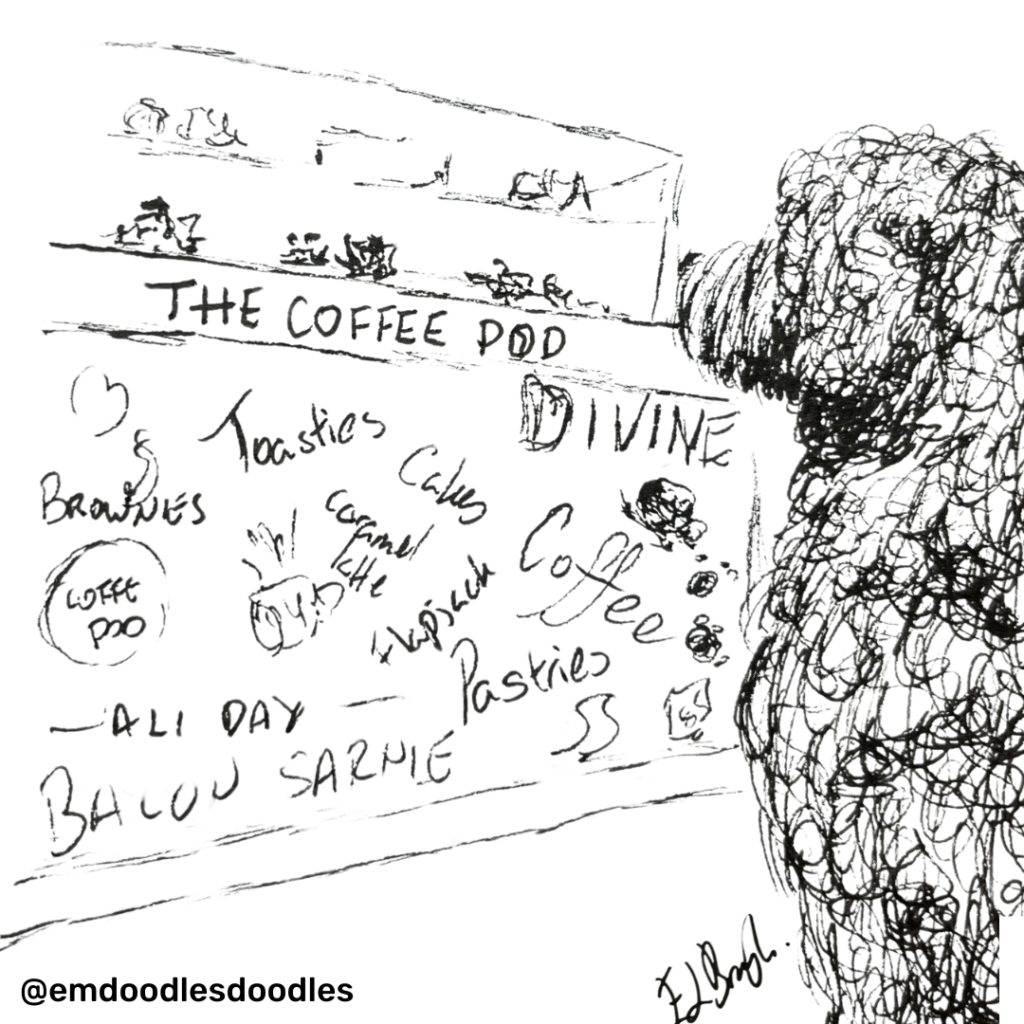 THE COFFEE POD
Toasties
DIVINE
Cakes
BROWNIES
caramel
latte
Coffee
COFFE
POD
flapjack
Pastries
ALL DAY
BACON SARNIE
@emdoodlesdoodles